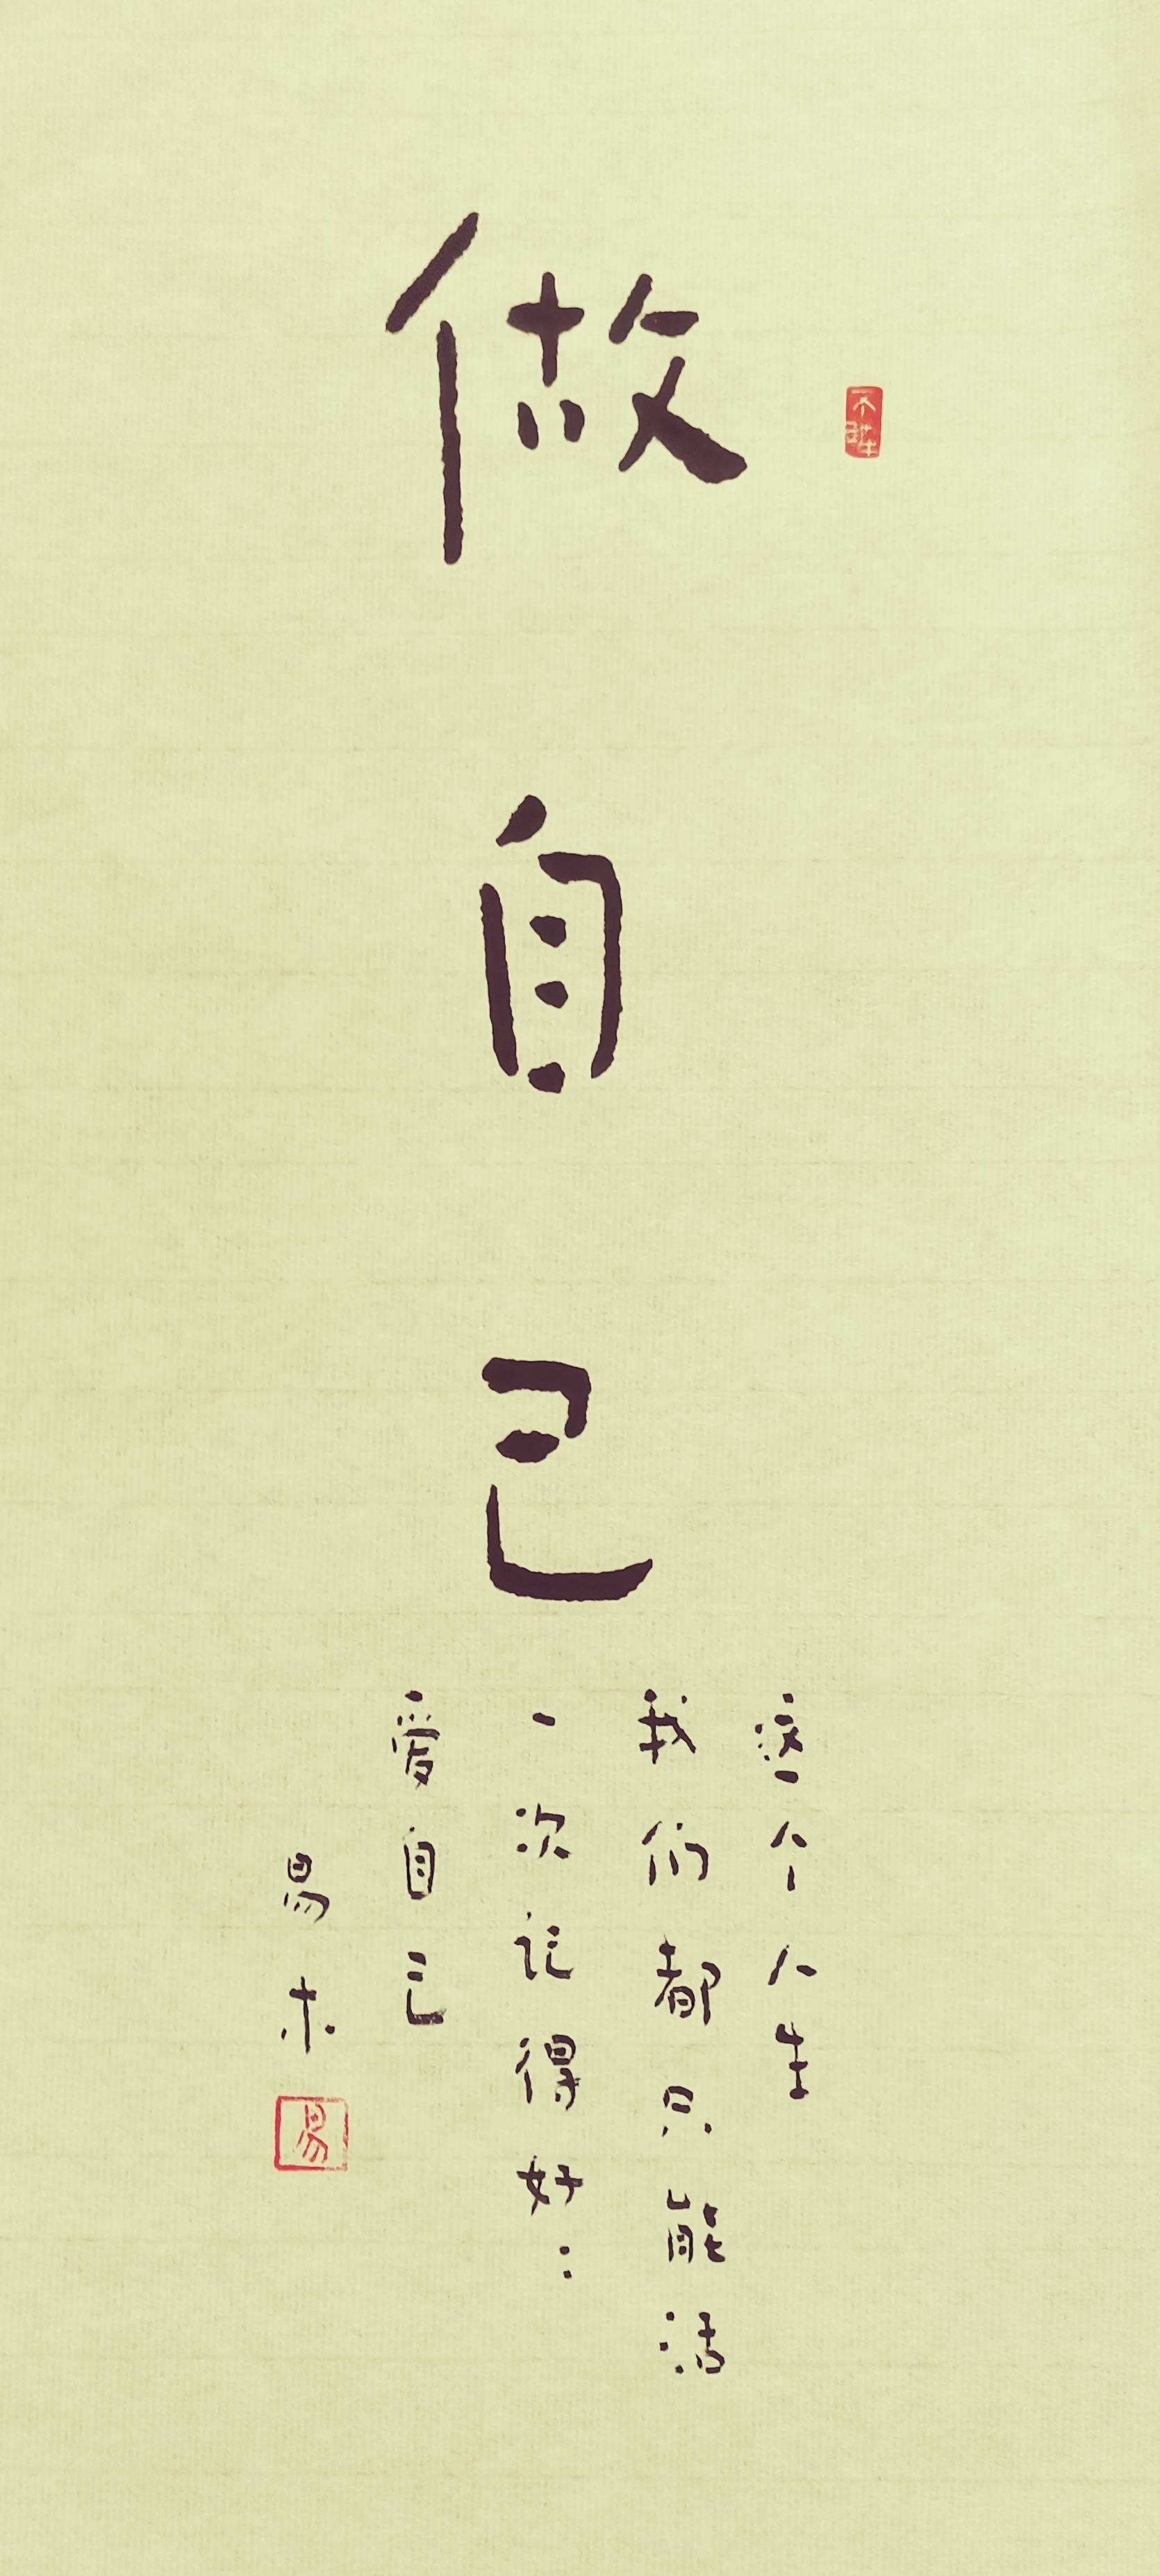 做自己
这个人生
我们都只能活
一次记得好：
愛自己
易木
易